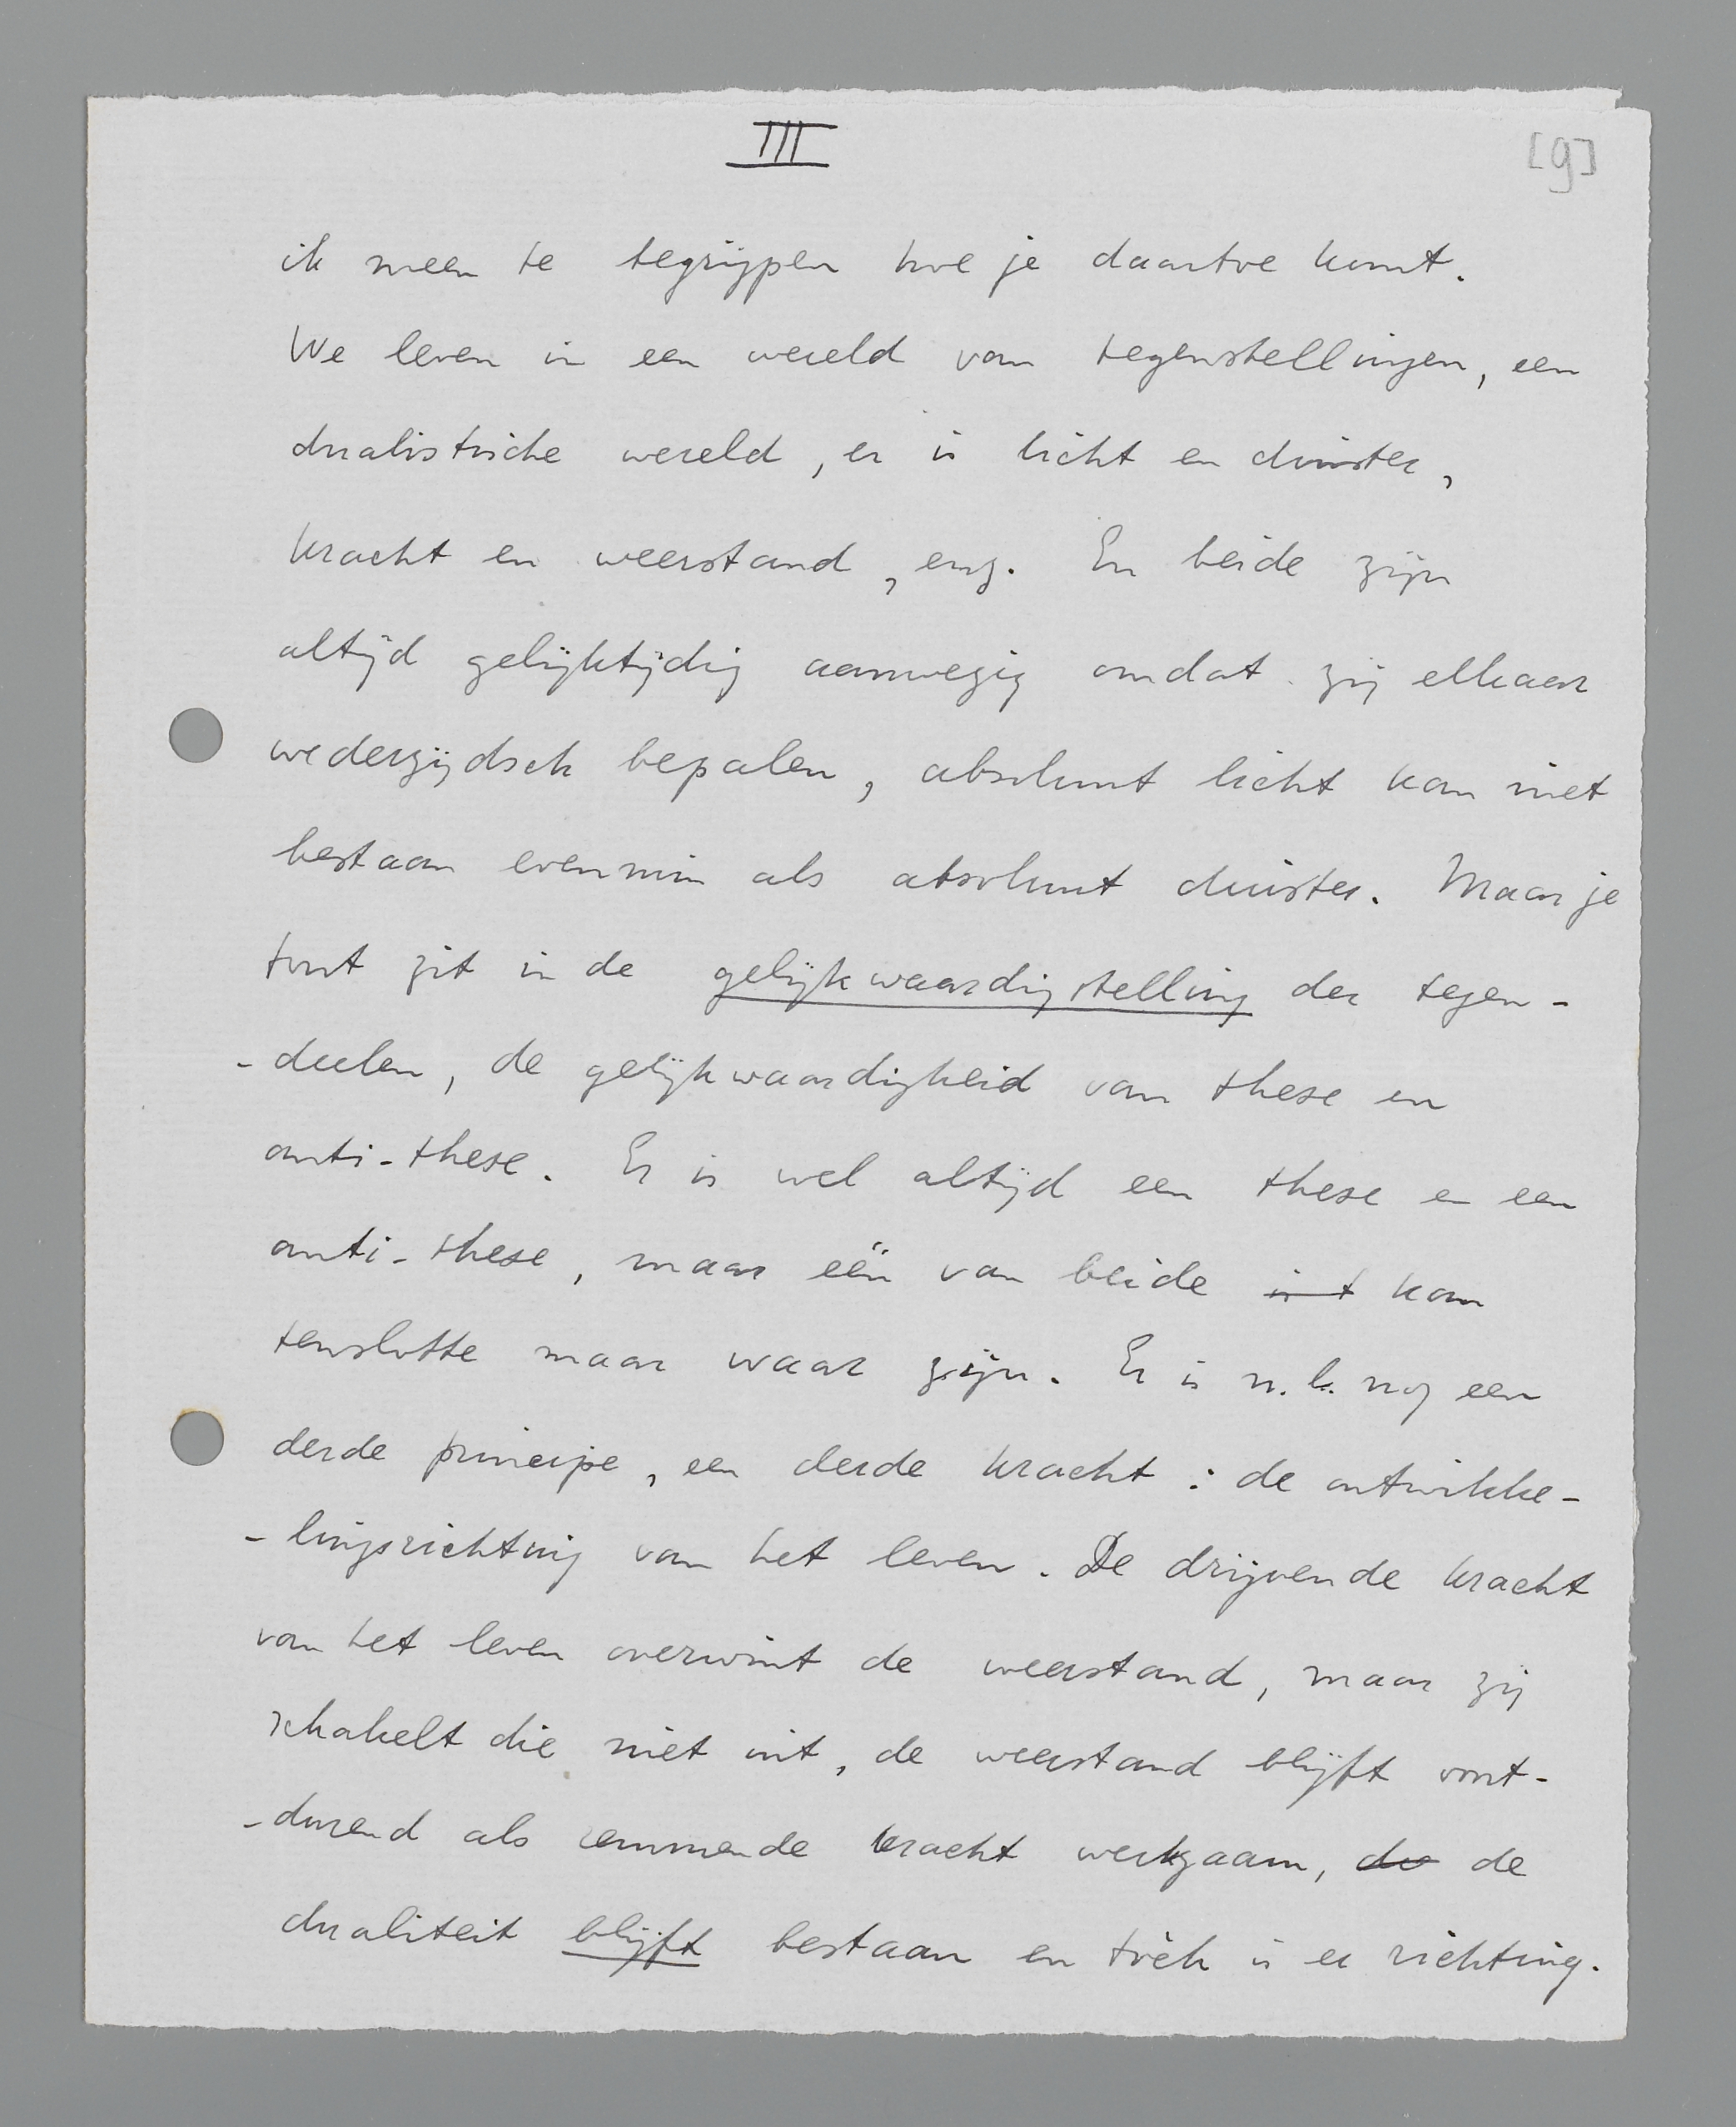 III
[9]
ik meen te begrijpen hoe je daartoe komt.
We leven in een wereld van tegenstellingen, een
dualistische wereld, er is licht en duister,
kracht en weerstand, enz. En beide zijn
altijd gelijktijdig aanwezig omdat zij elkaar
wederzijdsch bepalen, absoluut licht kan niet
bestaan evenmin als absoluut duister. Maar je
fout zit in de gelijkwaardigstelling der tegen-
-deelen, de gelijkwaardigheid van these en
anti-these. Er is wel altijd een these en een
anti-these, maar één van beide is t kan
tenslotte maar waar zijn. Er is n.l. nog een
derde principe, een derde kracht: de ontwikke-
-lingsrichting van het leven. De drijvende kracht
van het leven overwint de weerstand, maar zij
schakelt die niet uit, de weerstand blijft voort-
-durend als remmende kracht werkzaam, de
dualiteit blijft bestaan en tòch is er richting.